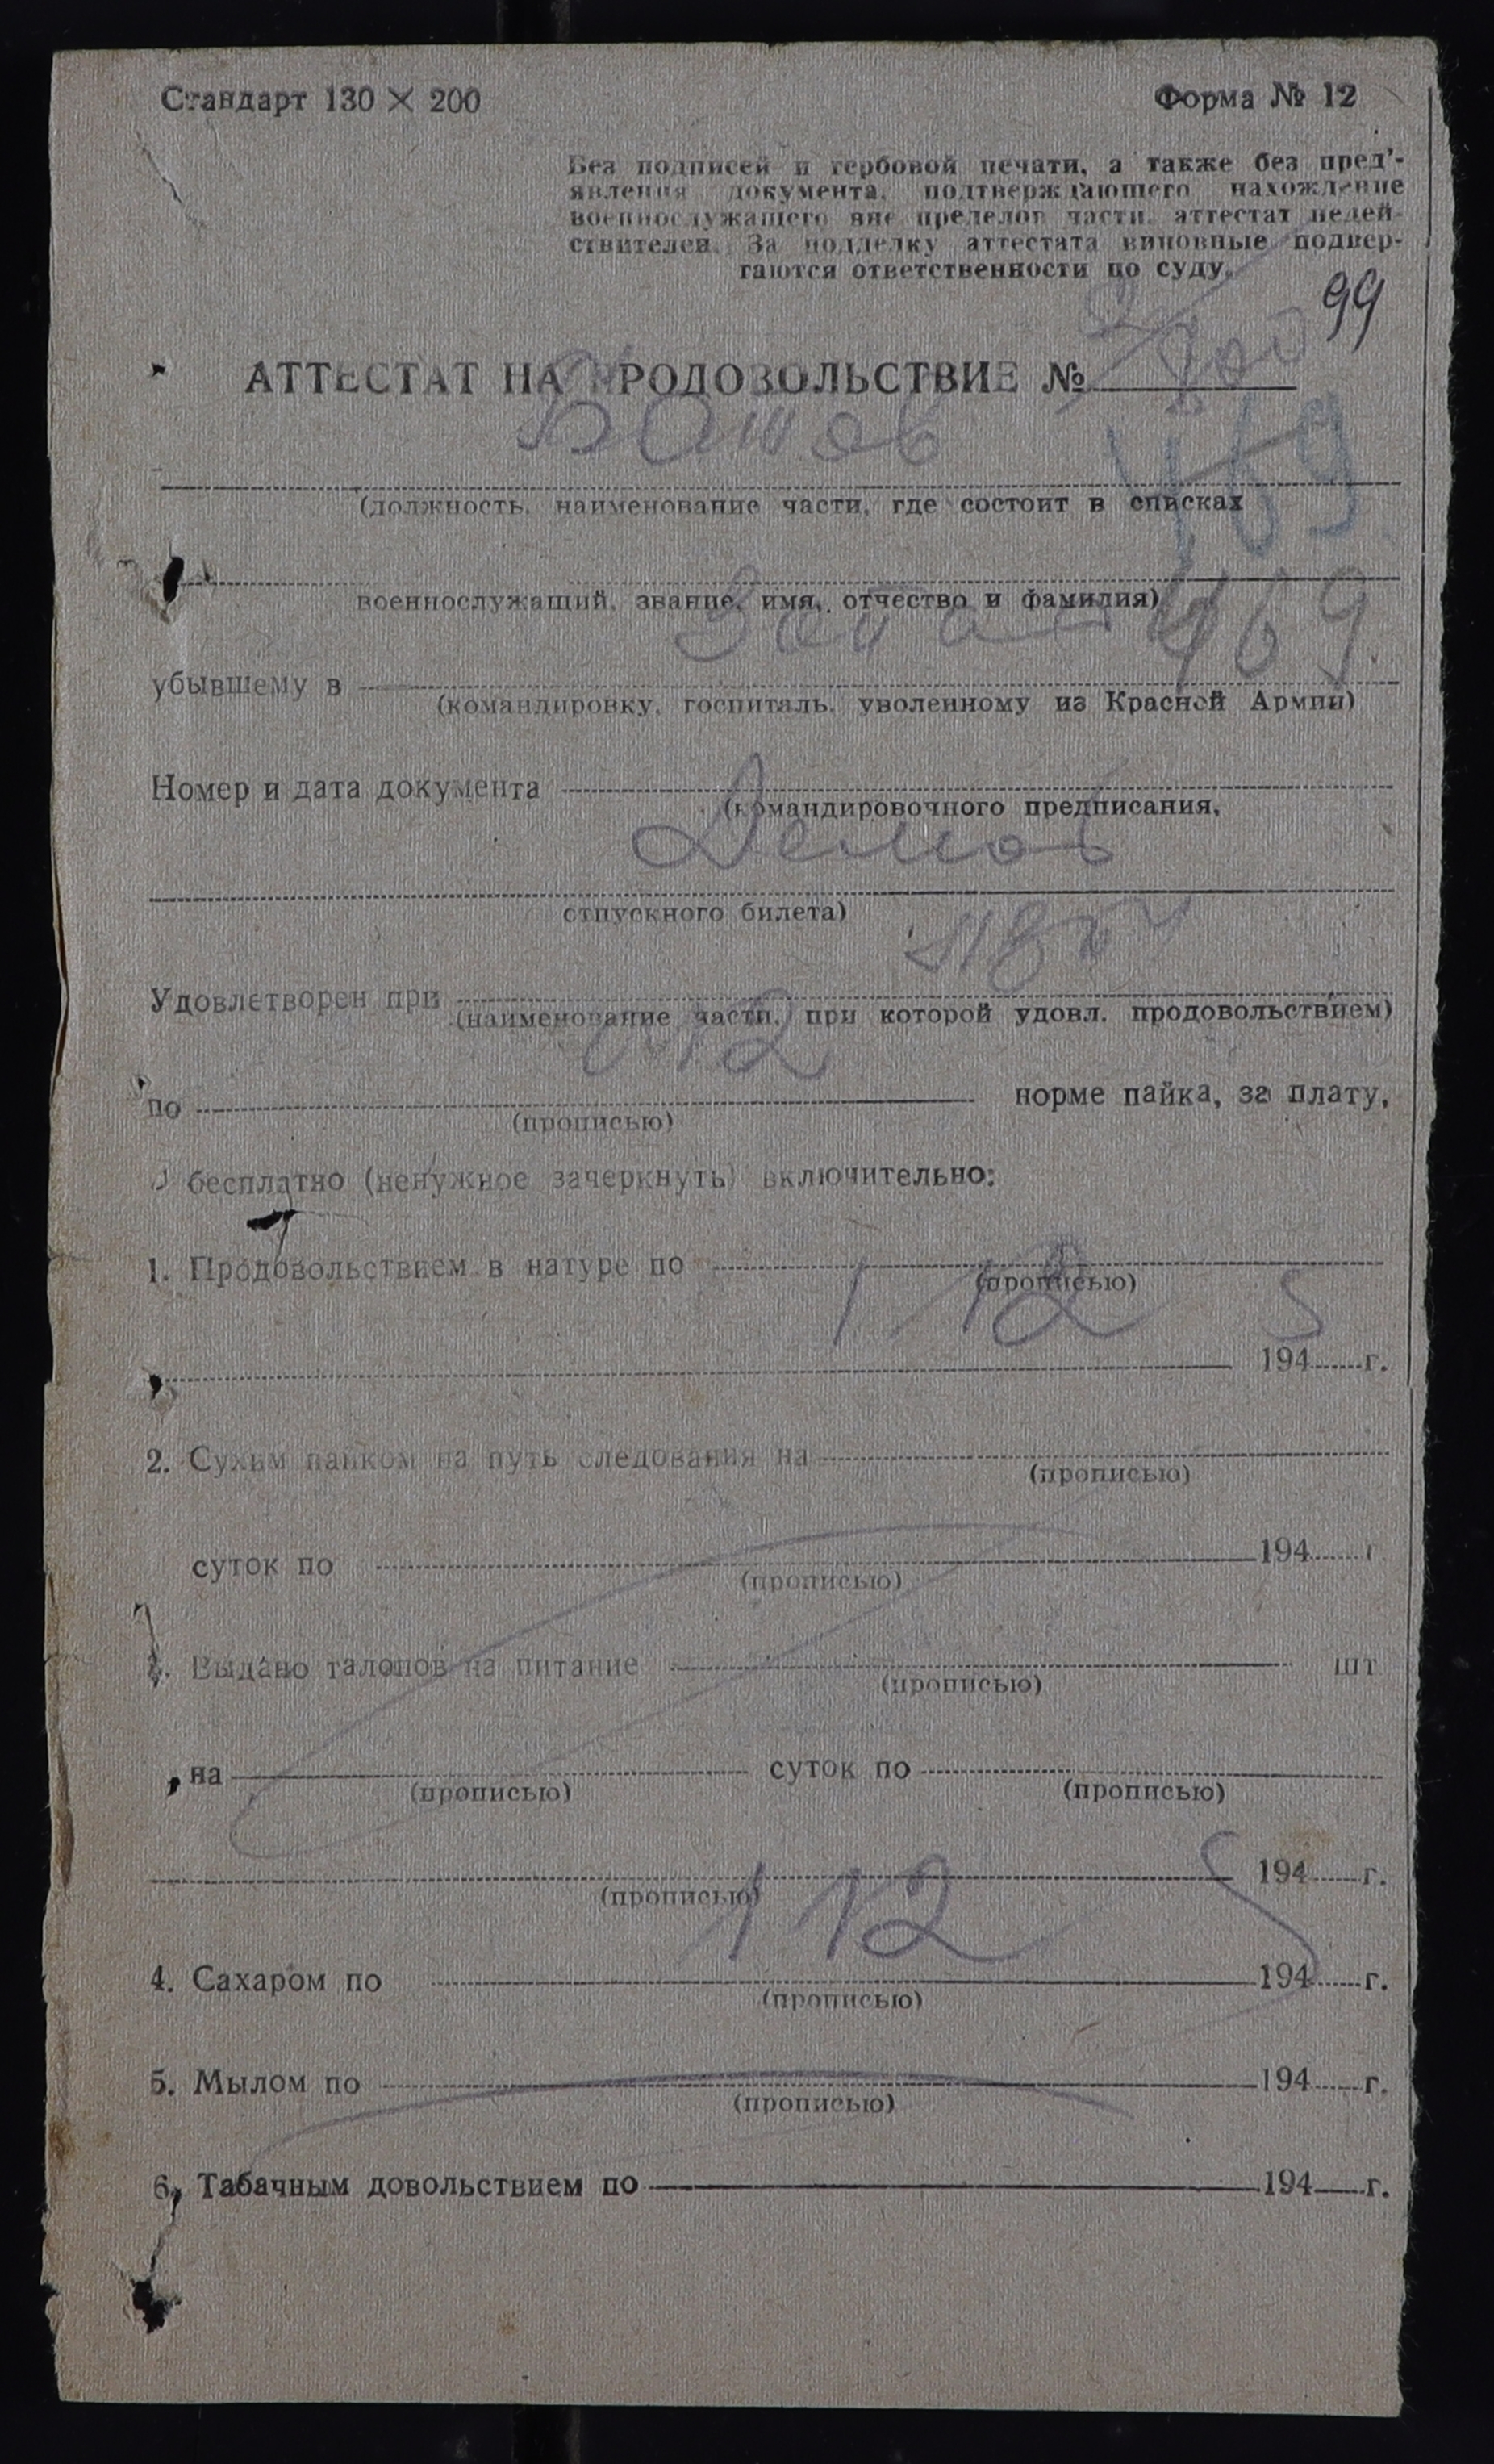 Стандарт 130 × 200
Форма № 12
Без подписей и гербовой печати, а также без пред'-
явления документа, подтверждающего нахождение
военнослужащего вне пределов части, аттестат недей-
ствителен. За подделку аттестата виновные подвер-
гаются ответственности по суду.
99
АТТЕСТАТ НА ПРОДОВОЛЬСТВИЕ №
469
(должность, наименование части, где состоит в списках
военнослужащий, звание, имя, отчество и фамилия)
469
убывшему в
(командировку, госпиталь, уволенному из Красной Армии)
Номер и дата документа
(командировочного предписания,
отпускного билета)
Удовлетворен при
(наименование части, при которой удовл. продовольствием)
№12
по норме пайка, за плату,
(прописью)
бесплатно (ненужное зачеркнуть) включительно:
1. Продовольствием в натуре по
(прописью)
1 12 5
194 г.
2. Сухим пайком на путь следования на
(прописью)
суток по 194 г
(прописью)
3. Выдано талонов на питание шт
(прописью)
на суток по
(прописью) (прописью)
194 г.
(прописью)
1 12 5
4. Сахаром по 194 г.
(прописью)
5. Мылом по 194 г.
(прописью)
6. Табачным довольствием по 194 г.